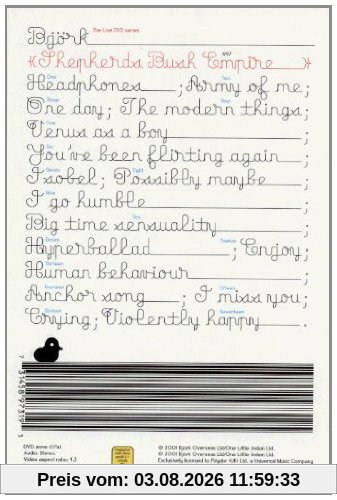 Björk The Live DVD series
{Shepherds Bush Empire 1997}
One Two
Headphones ; Army of me;
Three Four
One day; The modern things;
Five
Venus as a boy ;
Six
You've been flirting again ;
Seven Eight
Isobel; Possibly maybe ;
Nine
I go humble ;
Ten
Big time sensuality ;
Eleven Twelve
Hyperballad ; Enjoy;
Thirteen
Human behaviour ;
Fourteen Fifteen
Anchor song ; I miss you;
Sixteen Seventeen
Crying; Violently happy .
DVD zone: 0 Pal
Audio: Stereo
Video aspect ratio: 4:3
© 2001 Bjork Overseas Ltd/One Little Indian Ltd.
© 2001 Bjork Overseas Ltd/One Little Indian Ltd.
Exclusively licensed to Polydor (UK) Ltd. a Universal Music Company
Preis vom: 03.08.2026 11:59:33